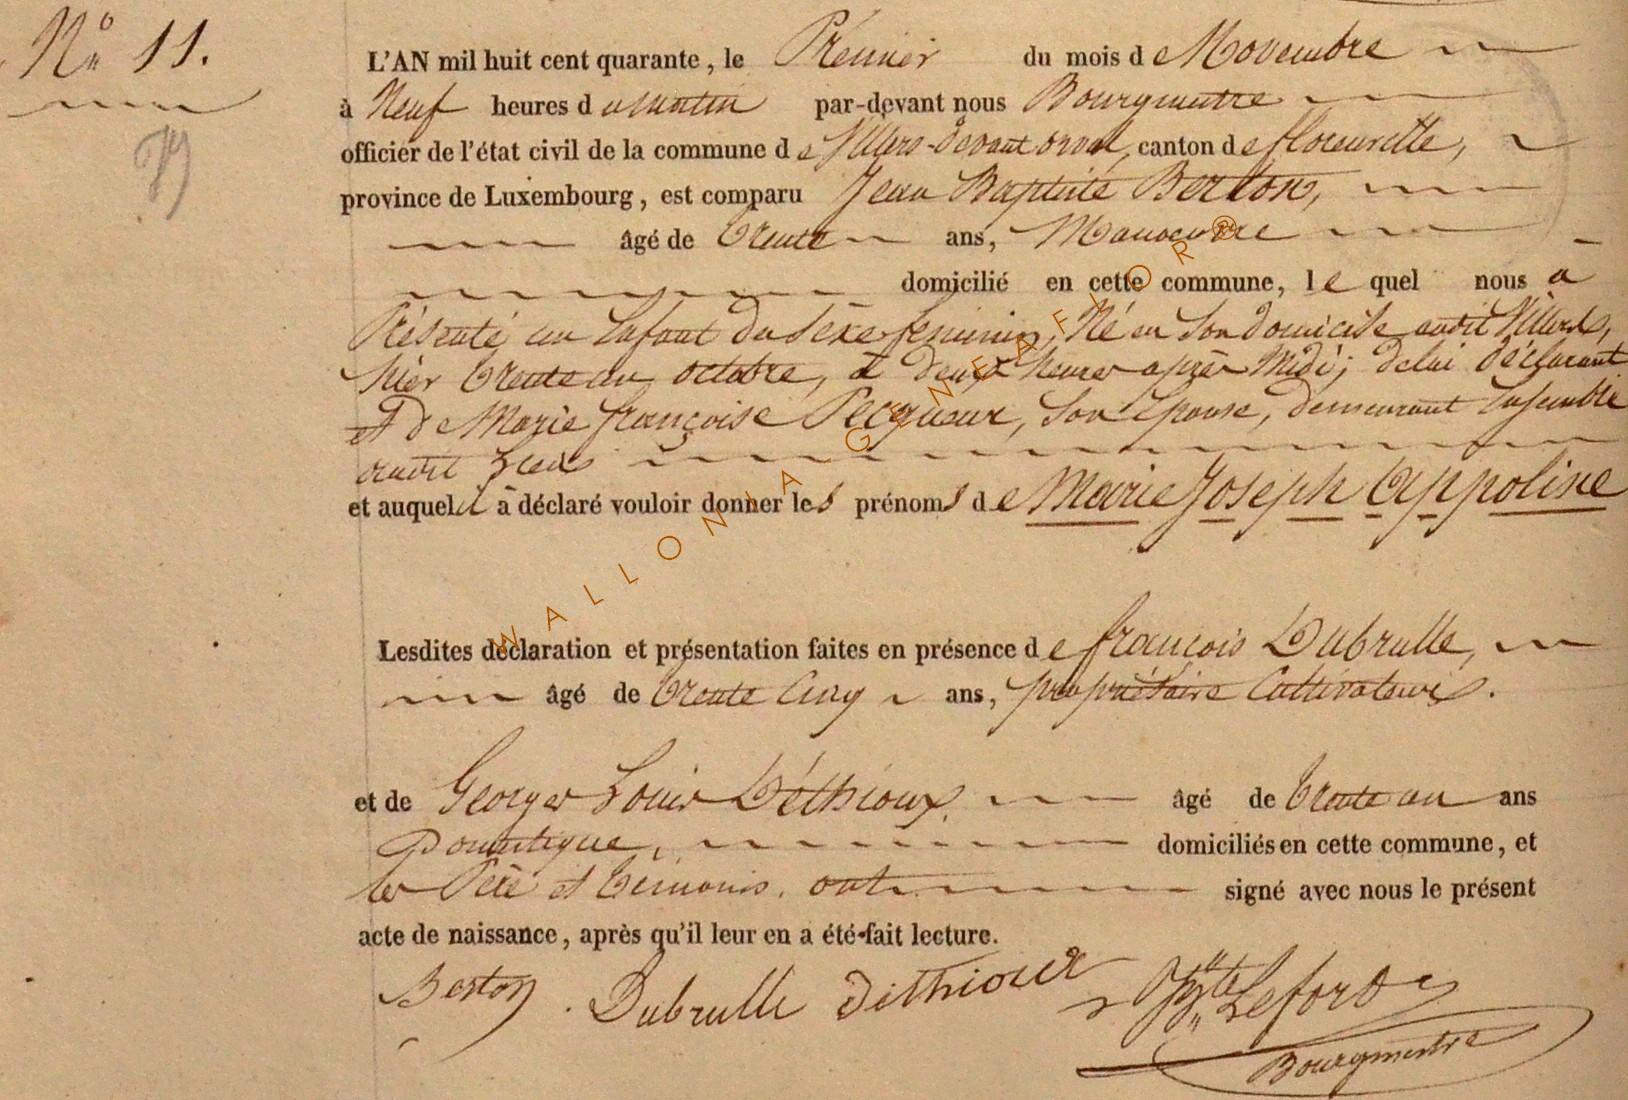 N° 11.
L'AN mil huit cent quarante, le Prémier du mois de Novembre
à Neuf heures du matin par-devant nous Bourgmestre
officier de l'état civil de la commune de Villers-devant orval, canton de florenville,
province de Luxembourg, est comparu Jean Baptiste Berton,
âgé de trente ans, Manoeuvre
domicilié en cette commune, lequel nous a
Présenté un Enfant du Sexe feminin, Né en Son domicile audit Villers,
hièr trente un octobre, à deux heures après Midi; de lui déclarant
et de Marie françoise Pecqueux, Son Epouse, demeurant Ensemble
audit Lieu
et auquel il à déclaré vouloir donner les prénoms de Marie Joseph Appoline
Lesdites déclaration et présentation faites en présence de françois Dubrulle,
âgé de trente Cinq ans, propriétaire Cultivateur.
et de Georges Louis Déthioux, âgé de trente un ans
Domestique, domiciliés en cette commune, et
les Père et témoins, ont signé avec nous le présent
acte de naissance, après qu'il leur en a été fait lecture.
Berton. Dubrulle Déthioux Jh Bte Lefort
Bourgmestre
WALLONIA GENEAFLOR®